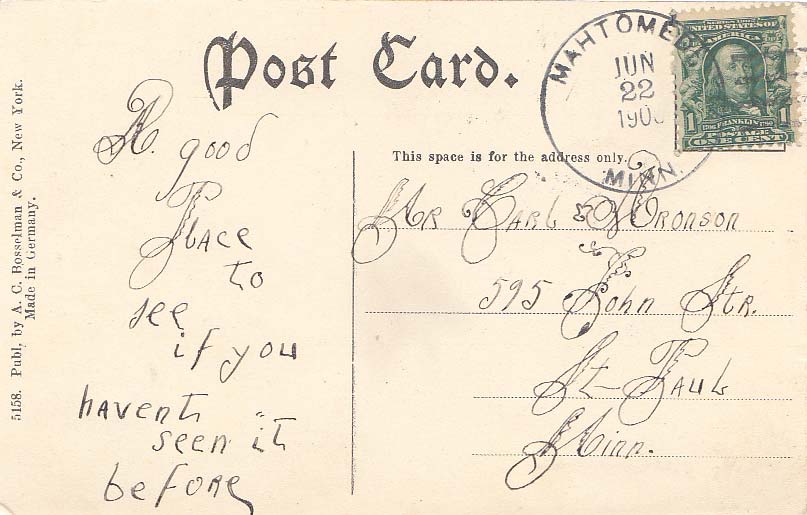 Post Card.
MAHTOMEDI
JUN
22
MINN.
SERIES 1902
UNITED STATES OF
AMERICA
1 1
FRANKLIN
POSTAGE
ONE CENT
This space is for the address only.
A good
Place
to
see
if you
havent
seen it
before
Mr Carl Aronson
595 John Str.
St-Paul
Minn.
5158. Publ. by A. C. Bosselman & Co., New York.
Made in Germany.